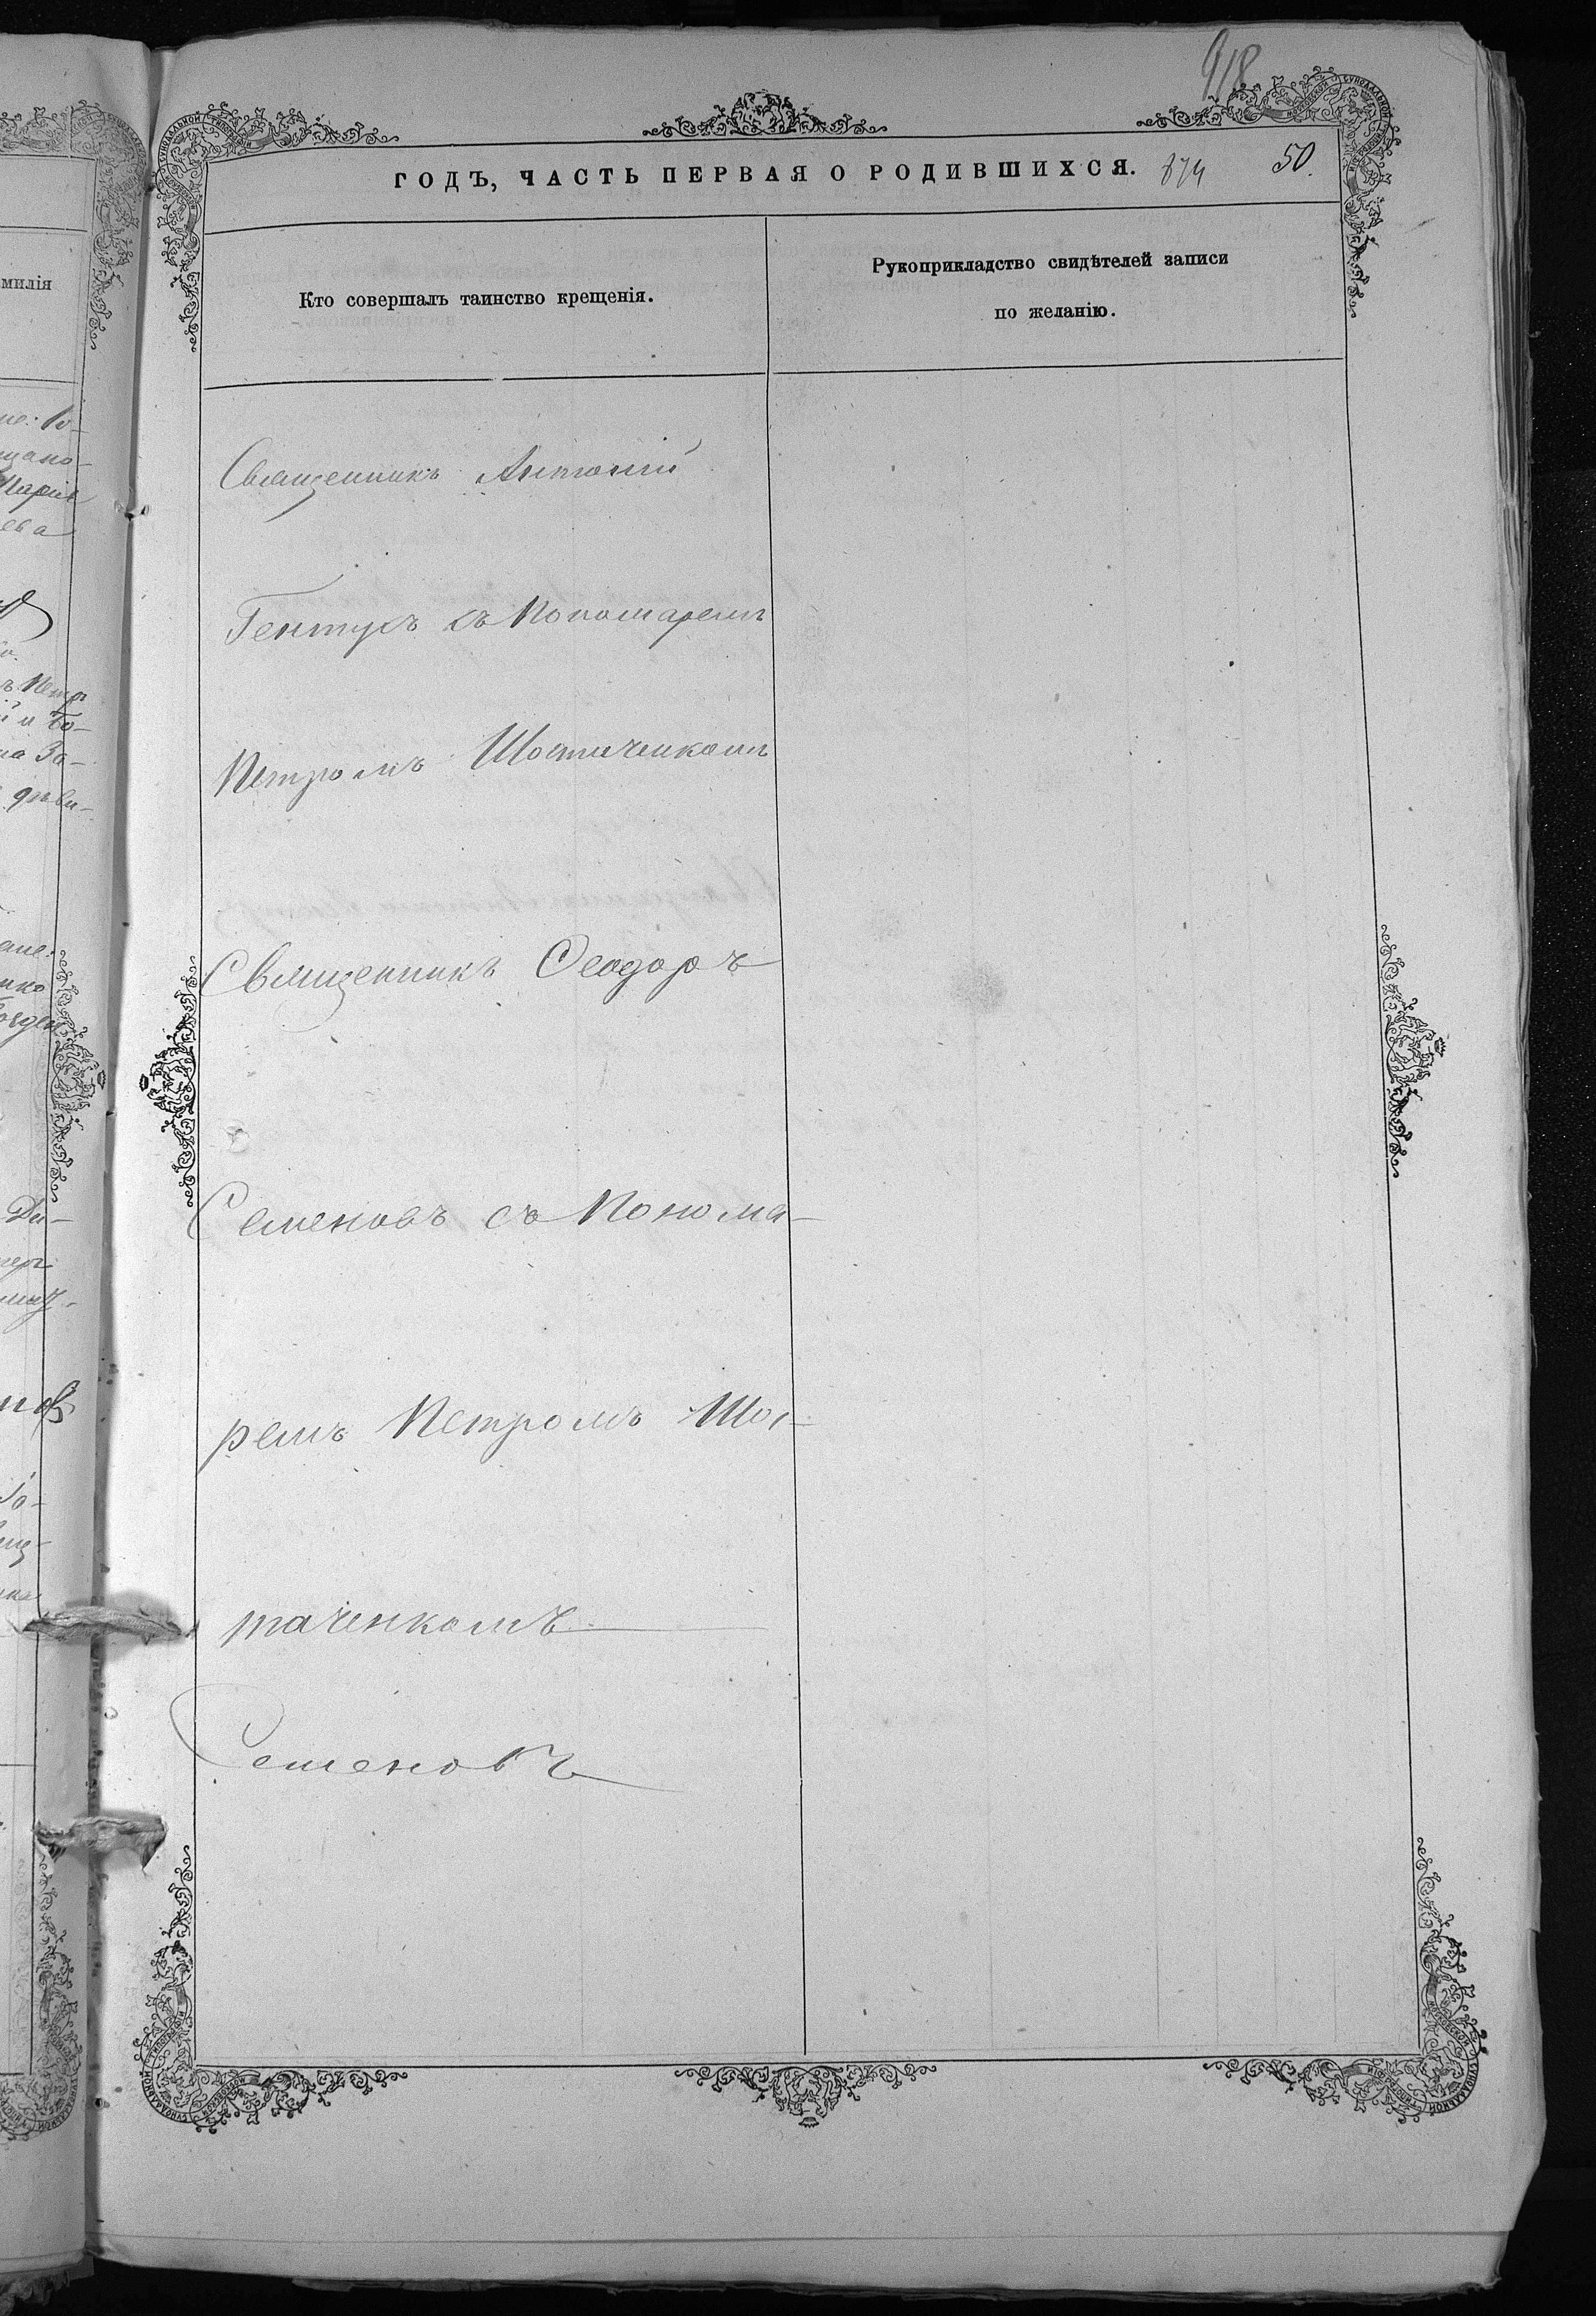 918
ГОДЪ, ЧАСТЬ ПЕРВАЯ О РОДИВШИХСЯ. 874 50.
Кто совершалъ таинство крещенія.
Рукоприкладство свидѣтелей записи
по желанію.
милія
Священникъ Антоній
Гентукъ съ Пономаремъ
Петромъ Шостаченкомъ
Священникъ Ѳеодоръ
Семеновъ съ Понома-
ремъ Петромъ Шос-
таченкомъ
Семеновъ